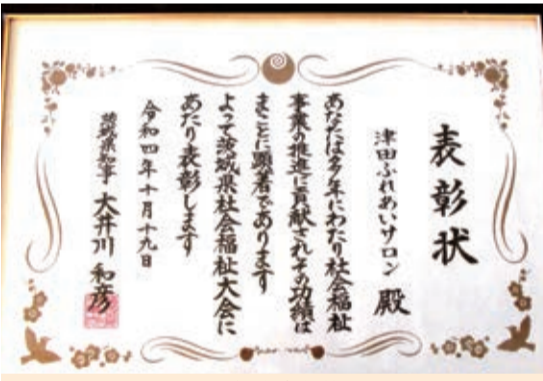 表彰状
津田ふれあいサロン 殿
あなたは多年にわたり社会福祉
事業の推進に貢献されその功績は
まことに顕著であります
よって茨城県社会福祉大会に
あたり表彰します
令和四年十月十九日
茨城県知事 大井川 和彦